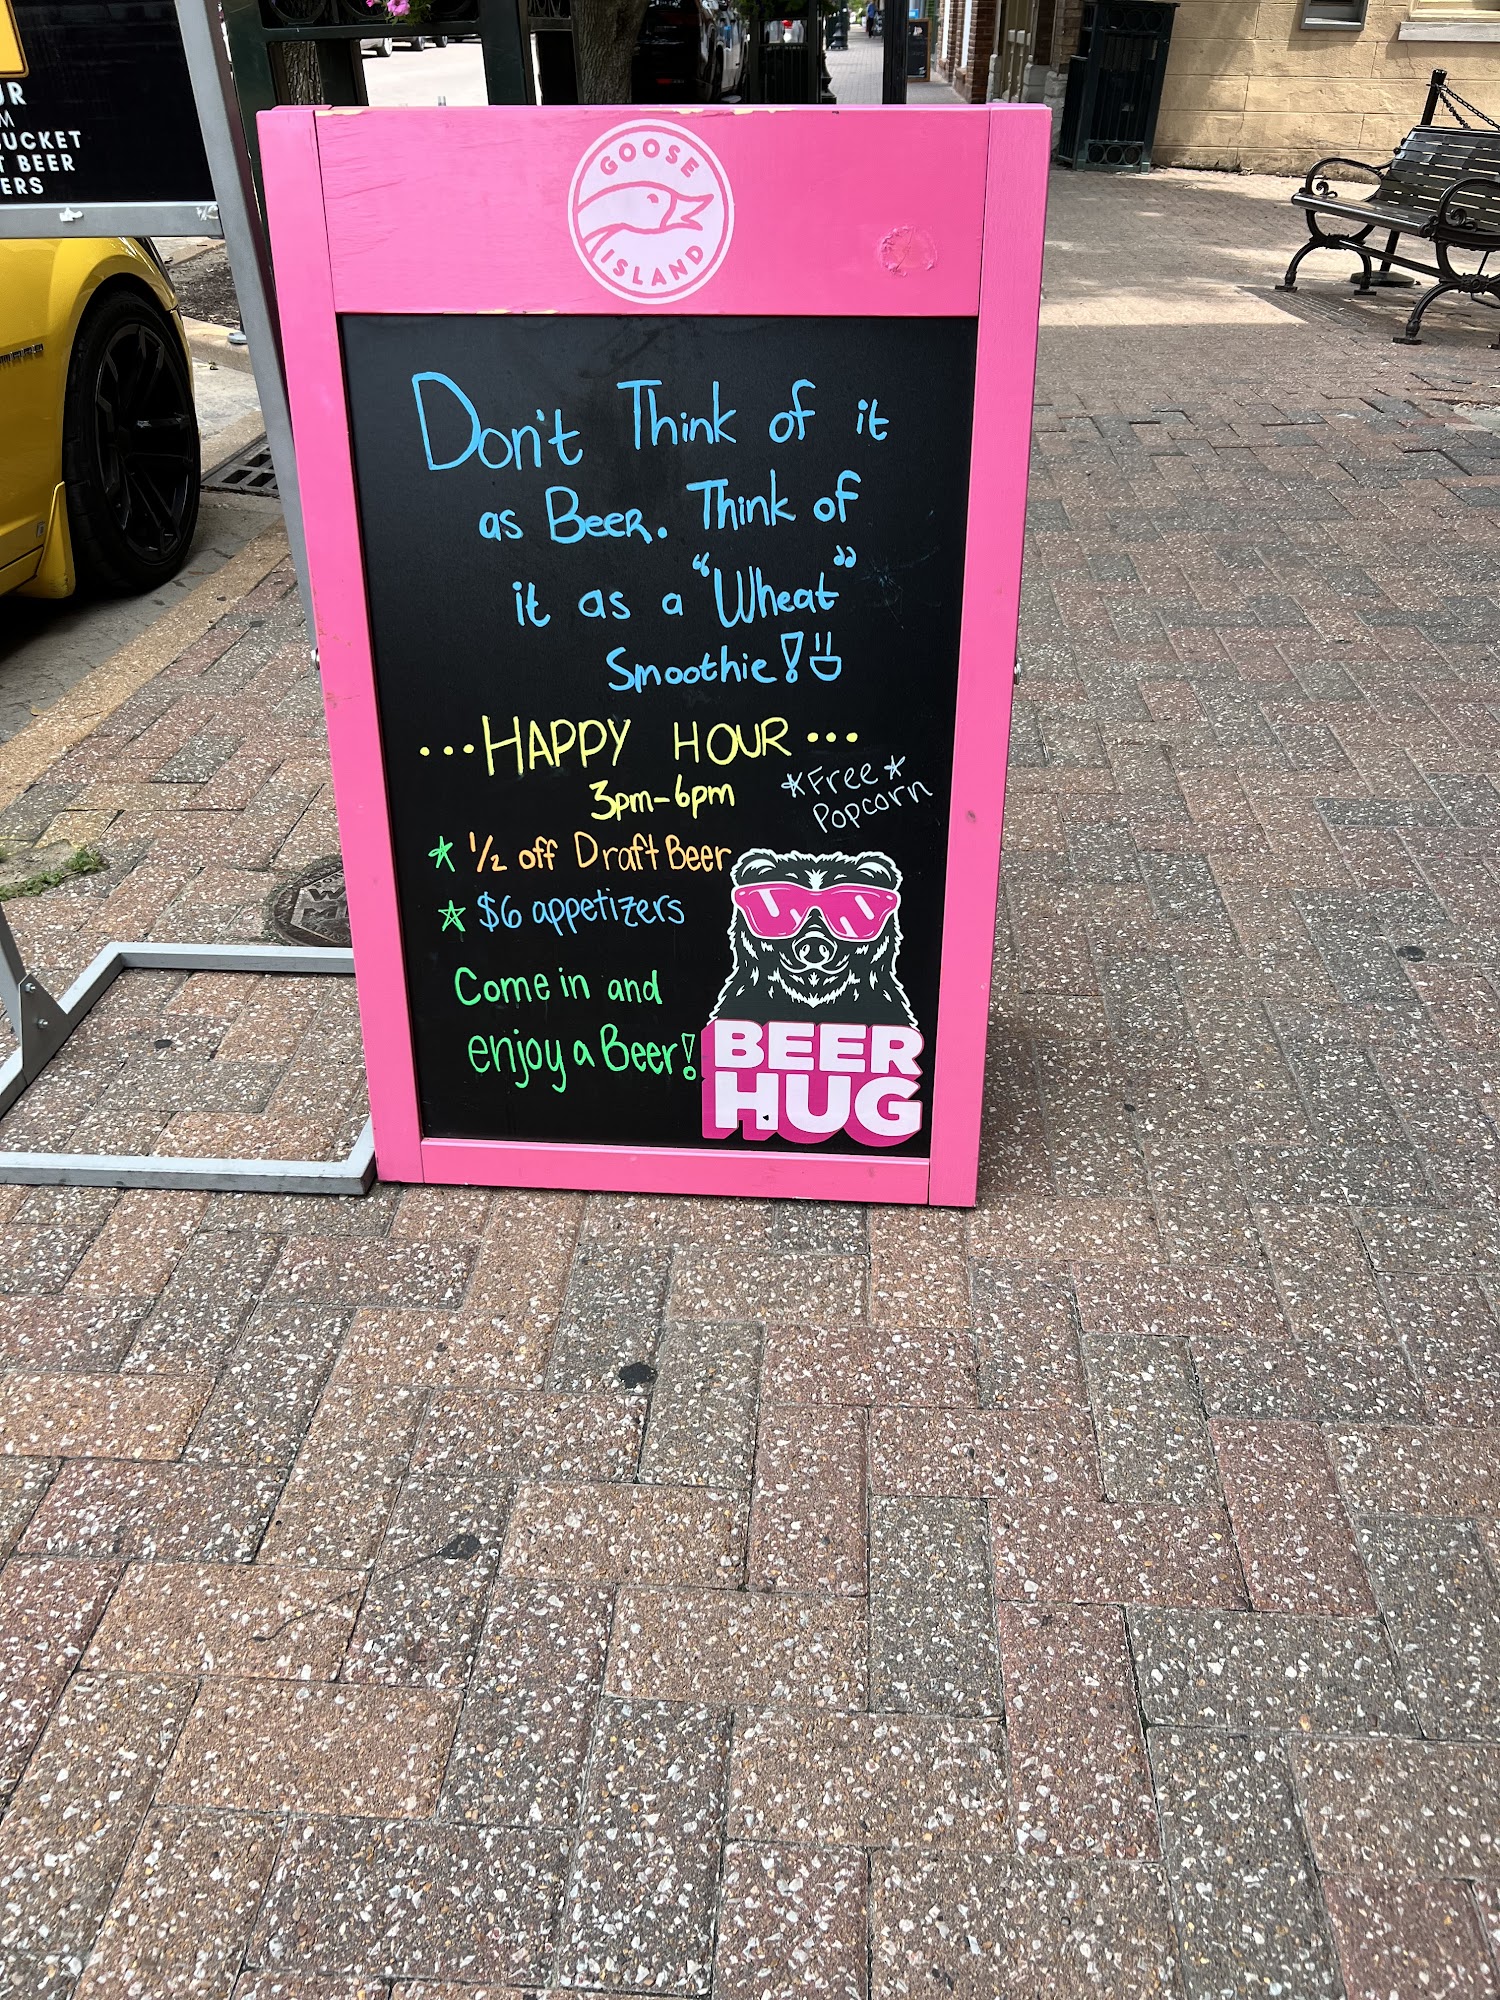 GOOSE
ISLAND
Don't Think of it
as Beer. Think of
it as a "Wheat"
Smoothie!
...HAPPY HOUR...
3pm-6pm
*Free*
Popcorn
½ off Draft Beer
$6 appetizers
Come in and
enjoy a Beer!
BEER
HUG
BEER